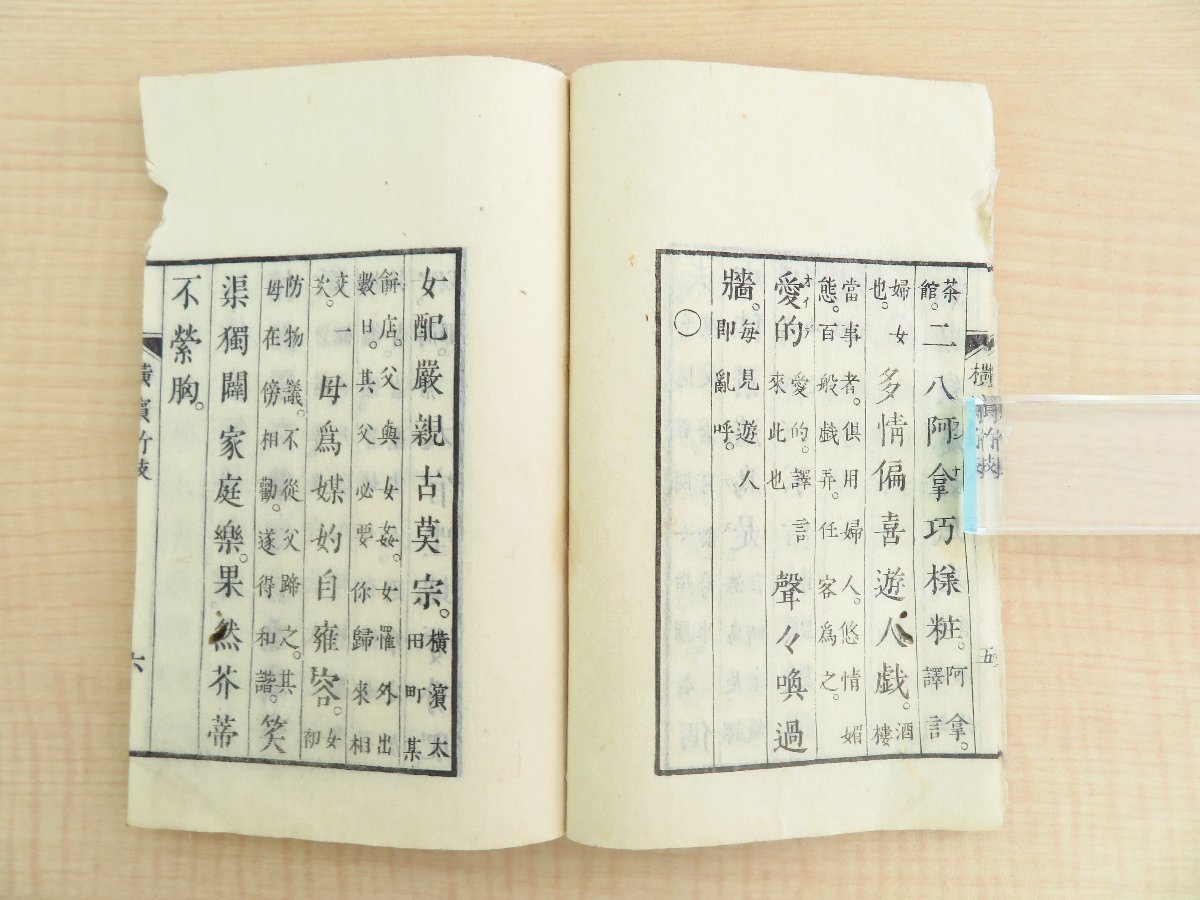 橫濱竹枝 五
茶館。二八阿拿巧樣粧。阿拿。譯言
婦女也。多情偏喜遊人戯。酒樓
當事者。俱用婦人。悠情媚
態。百般戯弄。任客爲之。
オイデ
愛的愛的。譯言來此也聲々喚過
牆。每見遊人即亂呼。
○
女配嚴親古莫宗。橫濱太田町某
餅店。父與女姦。女罹外出
數日。其父必要你歸來相
交一次。母爲媒妁自雍容。女初
防物議。不從父蹄之。其
母在傍相勸。遂得和諧。笑
渠獨闢家庭樂。果然芥蒂
不縈胸。
橫濱竹枝 六